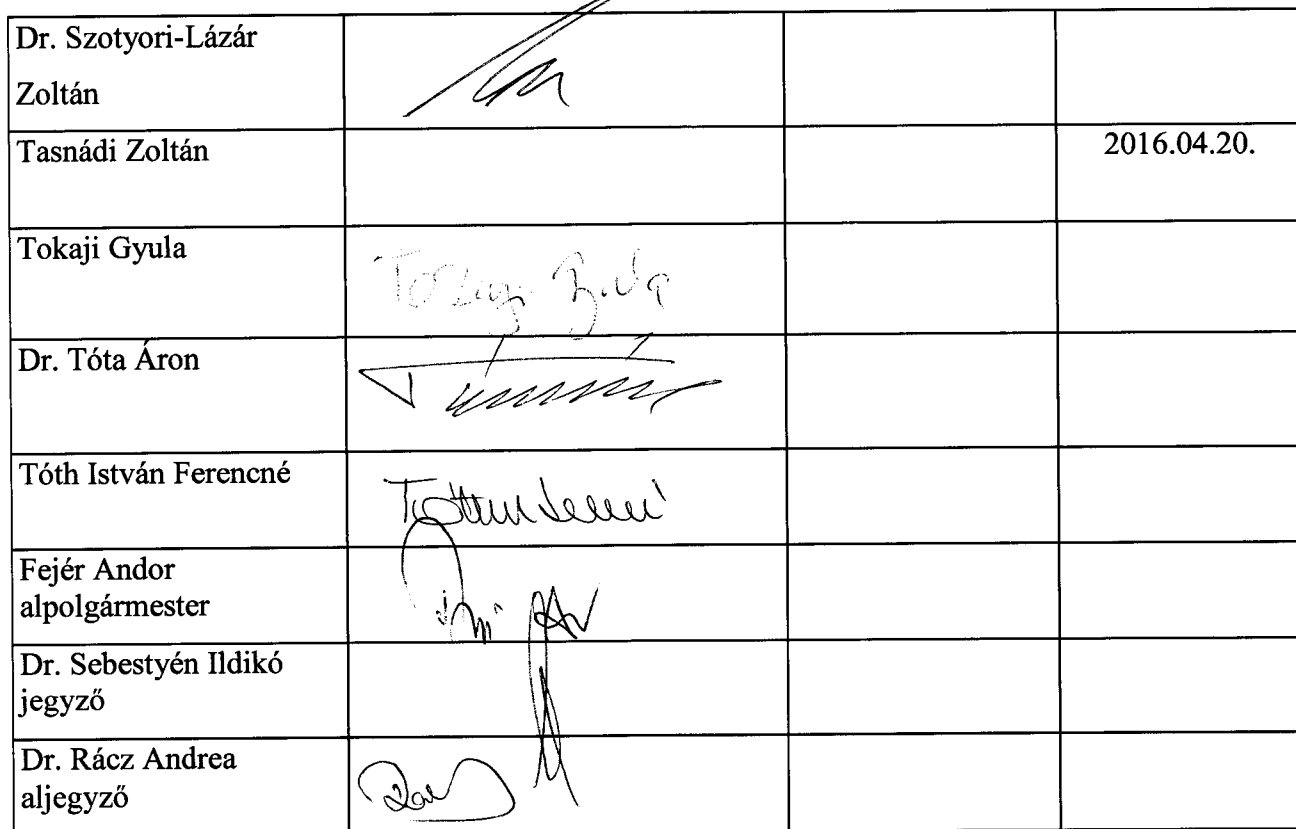 Dr. Szotyori-Lázár
Zoltán
Tasnádi Zoltán
2016.04.20.
Tokaji Gyula
Dr. Tóta Áron
Tóth István Ferencné
Fejér Andor
alpolgármester
Dr. Sebestyén Ildikó
jegyző
Dr. Rácz Andrea
aljegyző